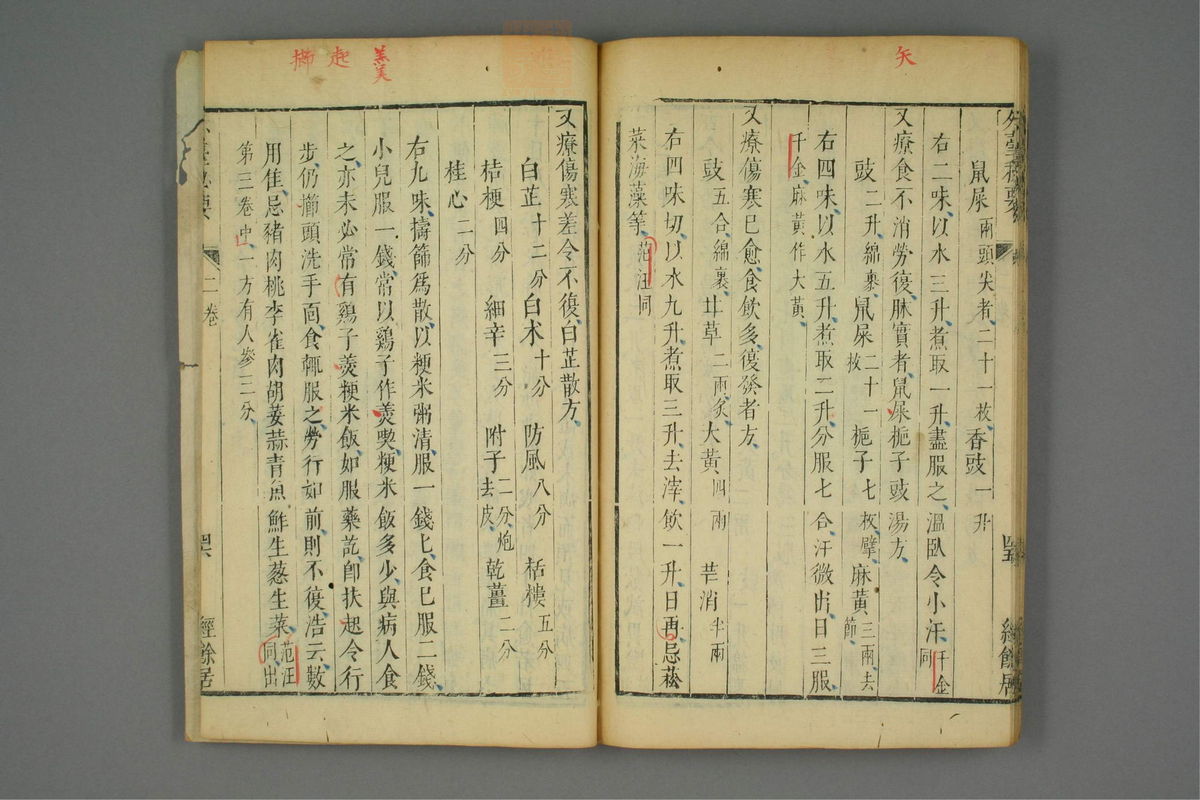 矢
鼠屎兩頭尖者二十一枚 香豉一升
右二味以水三升煮取一升盡服之溫臥令小汗千金同
又療食不消勞復脉實者鼠屎梔子豉湯方
豉二升綿裹 鼠屎二十一枚 梔子七枚擘 麻黃三兩去節
右四味以水五升煮取二升分服七合汗微出日三服
千金麻黃作大黃
又療傷寒已愈食飲多復發者方
豉五合綿裹 甘草二兩炙 大黃四兩 芒消半兩
右四味切以水九升煮取三升去滓飲一升日再忌菘
菜海藻等范汪同
又療傷寒差令不復白芷散方
白芷十二分 白朮十分 防風八分 栝樓五分
桔梗四分 細辛三分 附子二分炮去皮 乾薑二分
桂心二分
右九味擣篩爲散以粳米粥清服一錢匕食已服二錢
小兒服一錢常以鷄子作羹喫粳米飯多少與病人食
之亦未必常有鷄子羹粳米飯如服藥訖卽扶起令行
步仍櫛頭洗手面食輒服之勞行如前則不復浩云數
用佳忌豬肉桃李雀肉胡荽蒜青魚鮓生葱生菜范汪同出
第三卷中一方有人參三分
二卷
四六
經餘居
羹
起
櫛